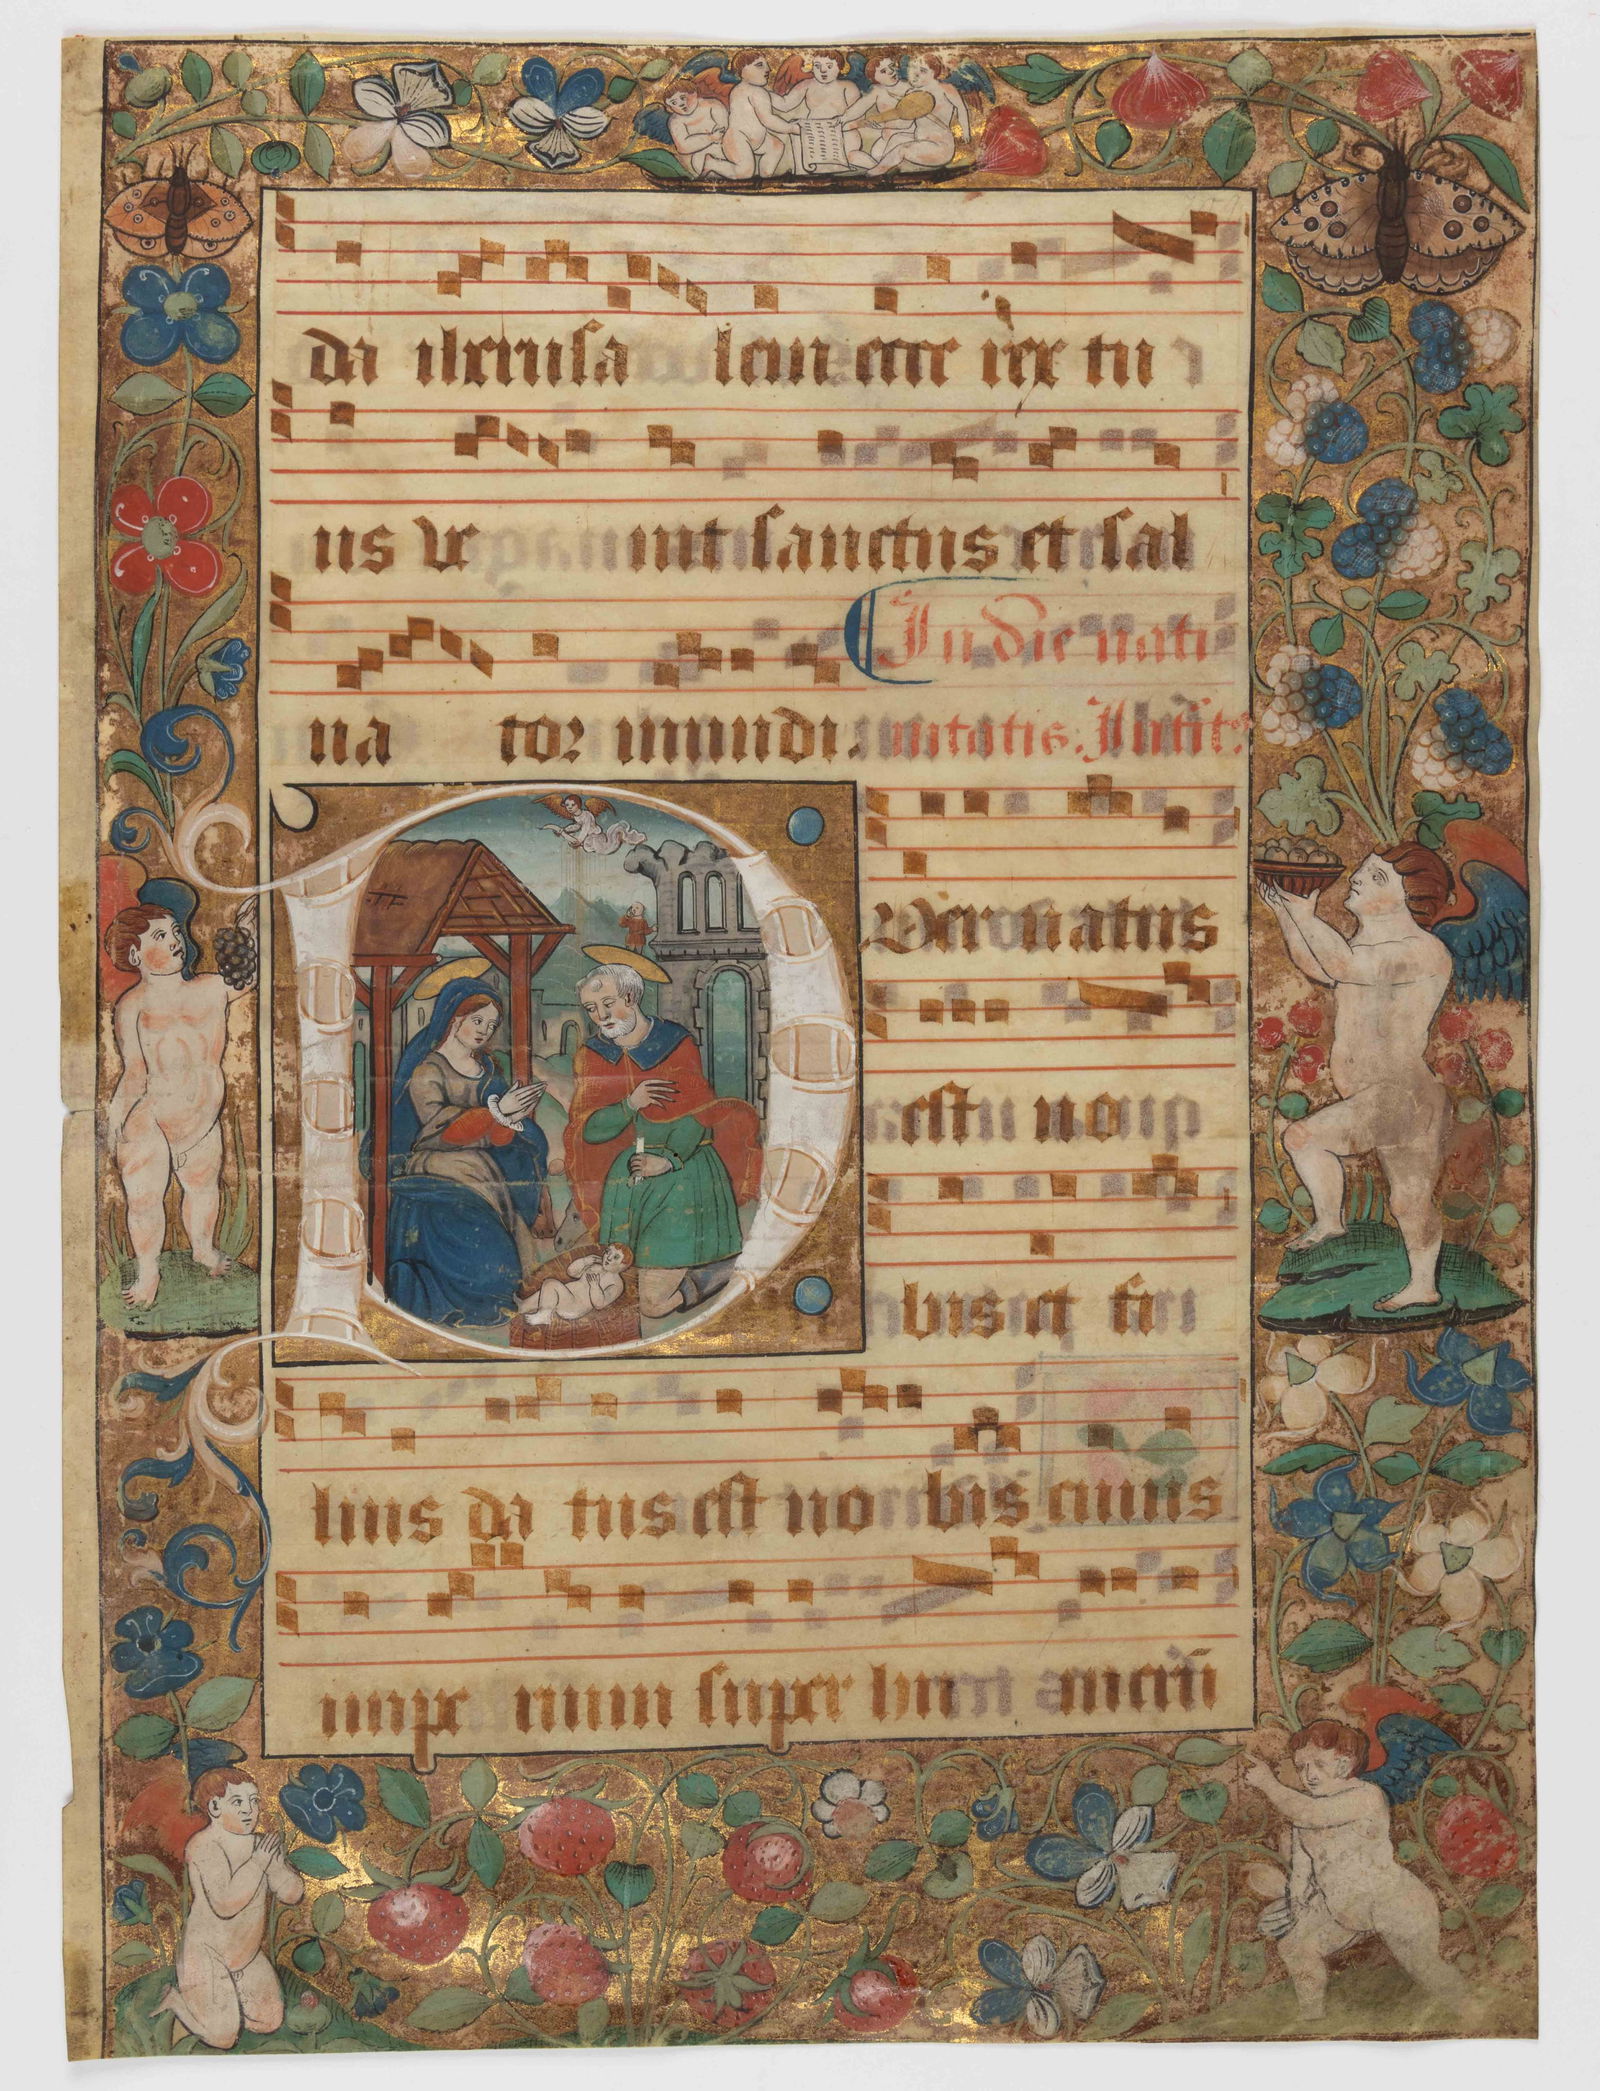 da iherusa lem ecce rex tu
us ve nit sanctus et sal
In die nati
na tor mundi. uitatis. Introit9
Puer natus
est no
bis et fi
lius da tus est no bis cuius
impe rium super hu meru